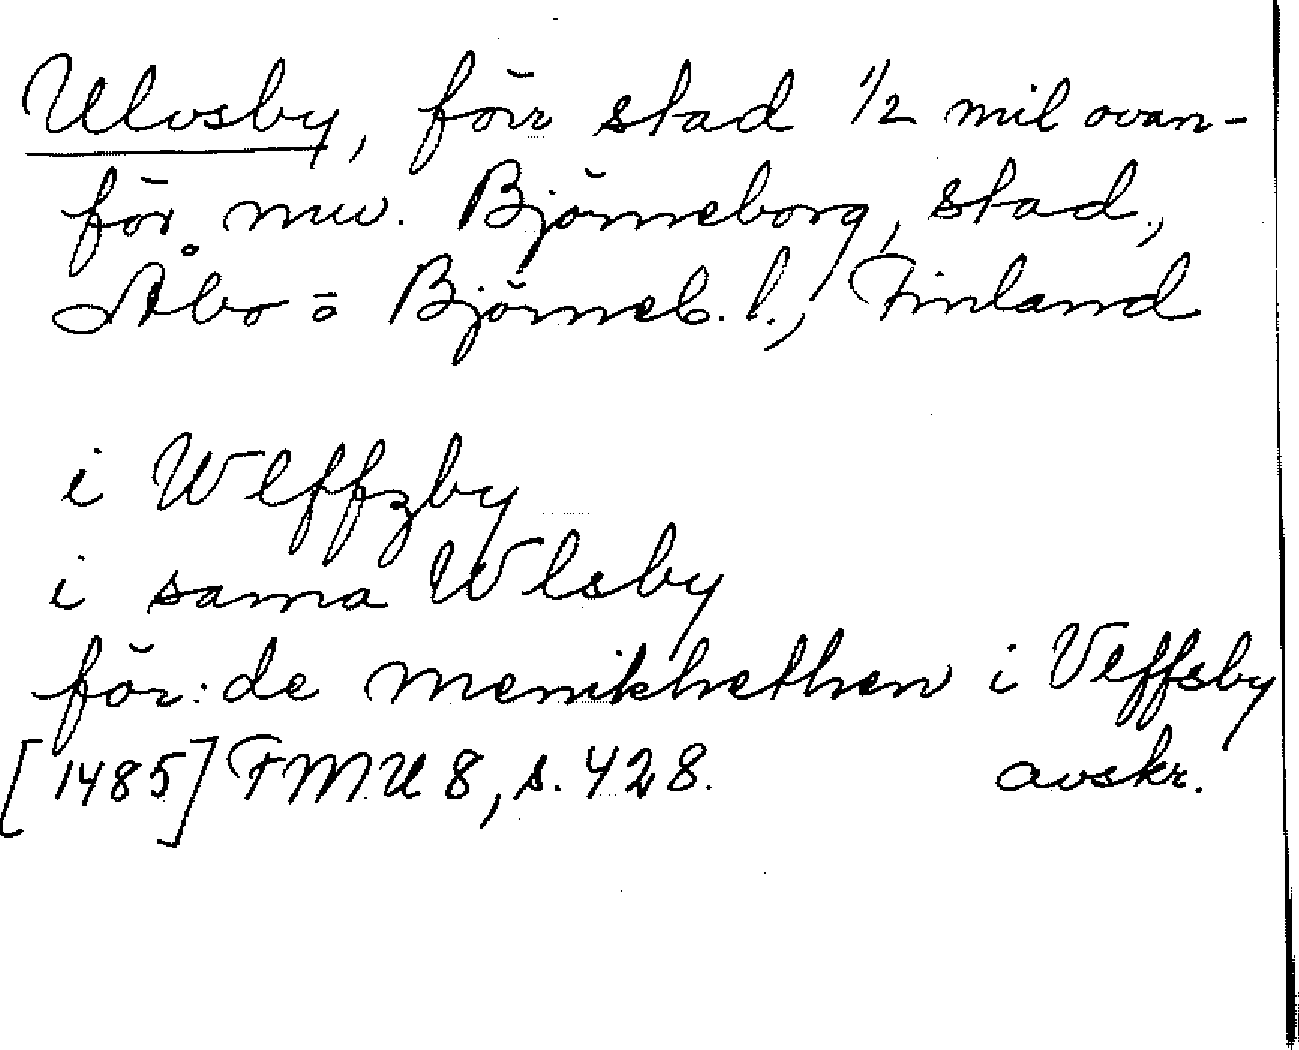 Ulvsby, förr stad 1/2 mil ovan-
för nuv. Björneborg, stad,
Åbo = Björneb. l., Finland
i Wlffzby
i sama Wlsby
för: de menikhethen i Vlffsby
[1485] FMU 8, s. 428. avskr.